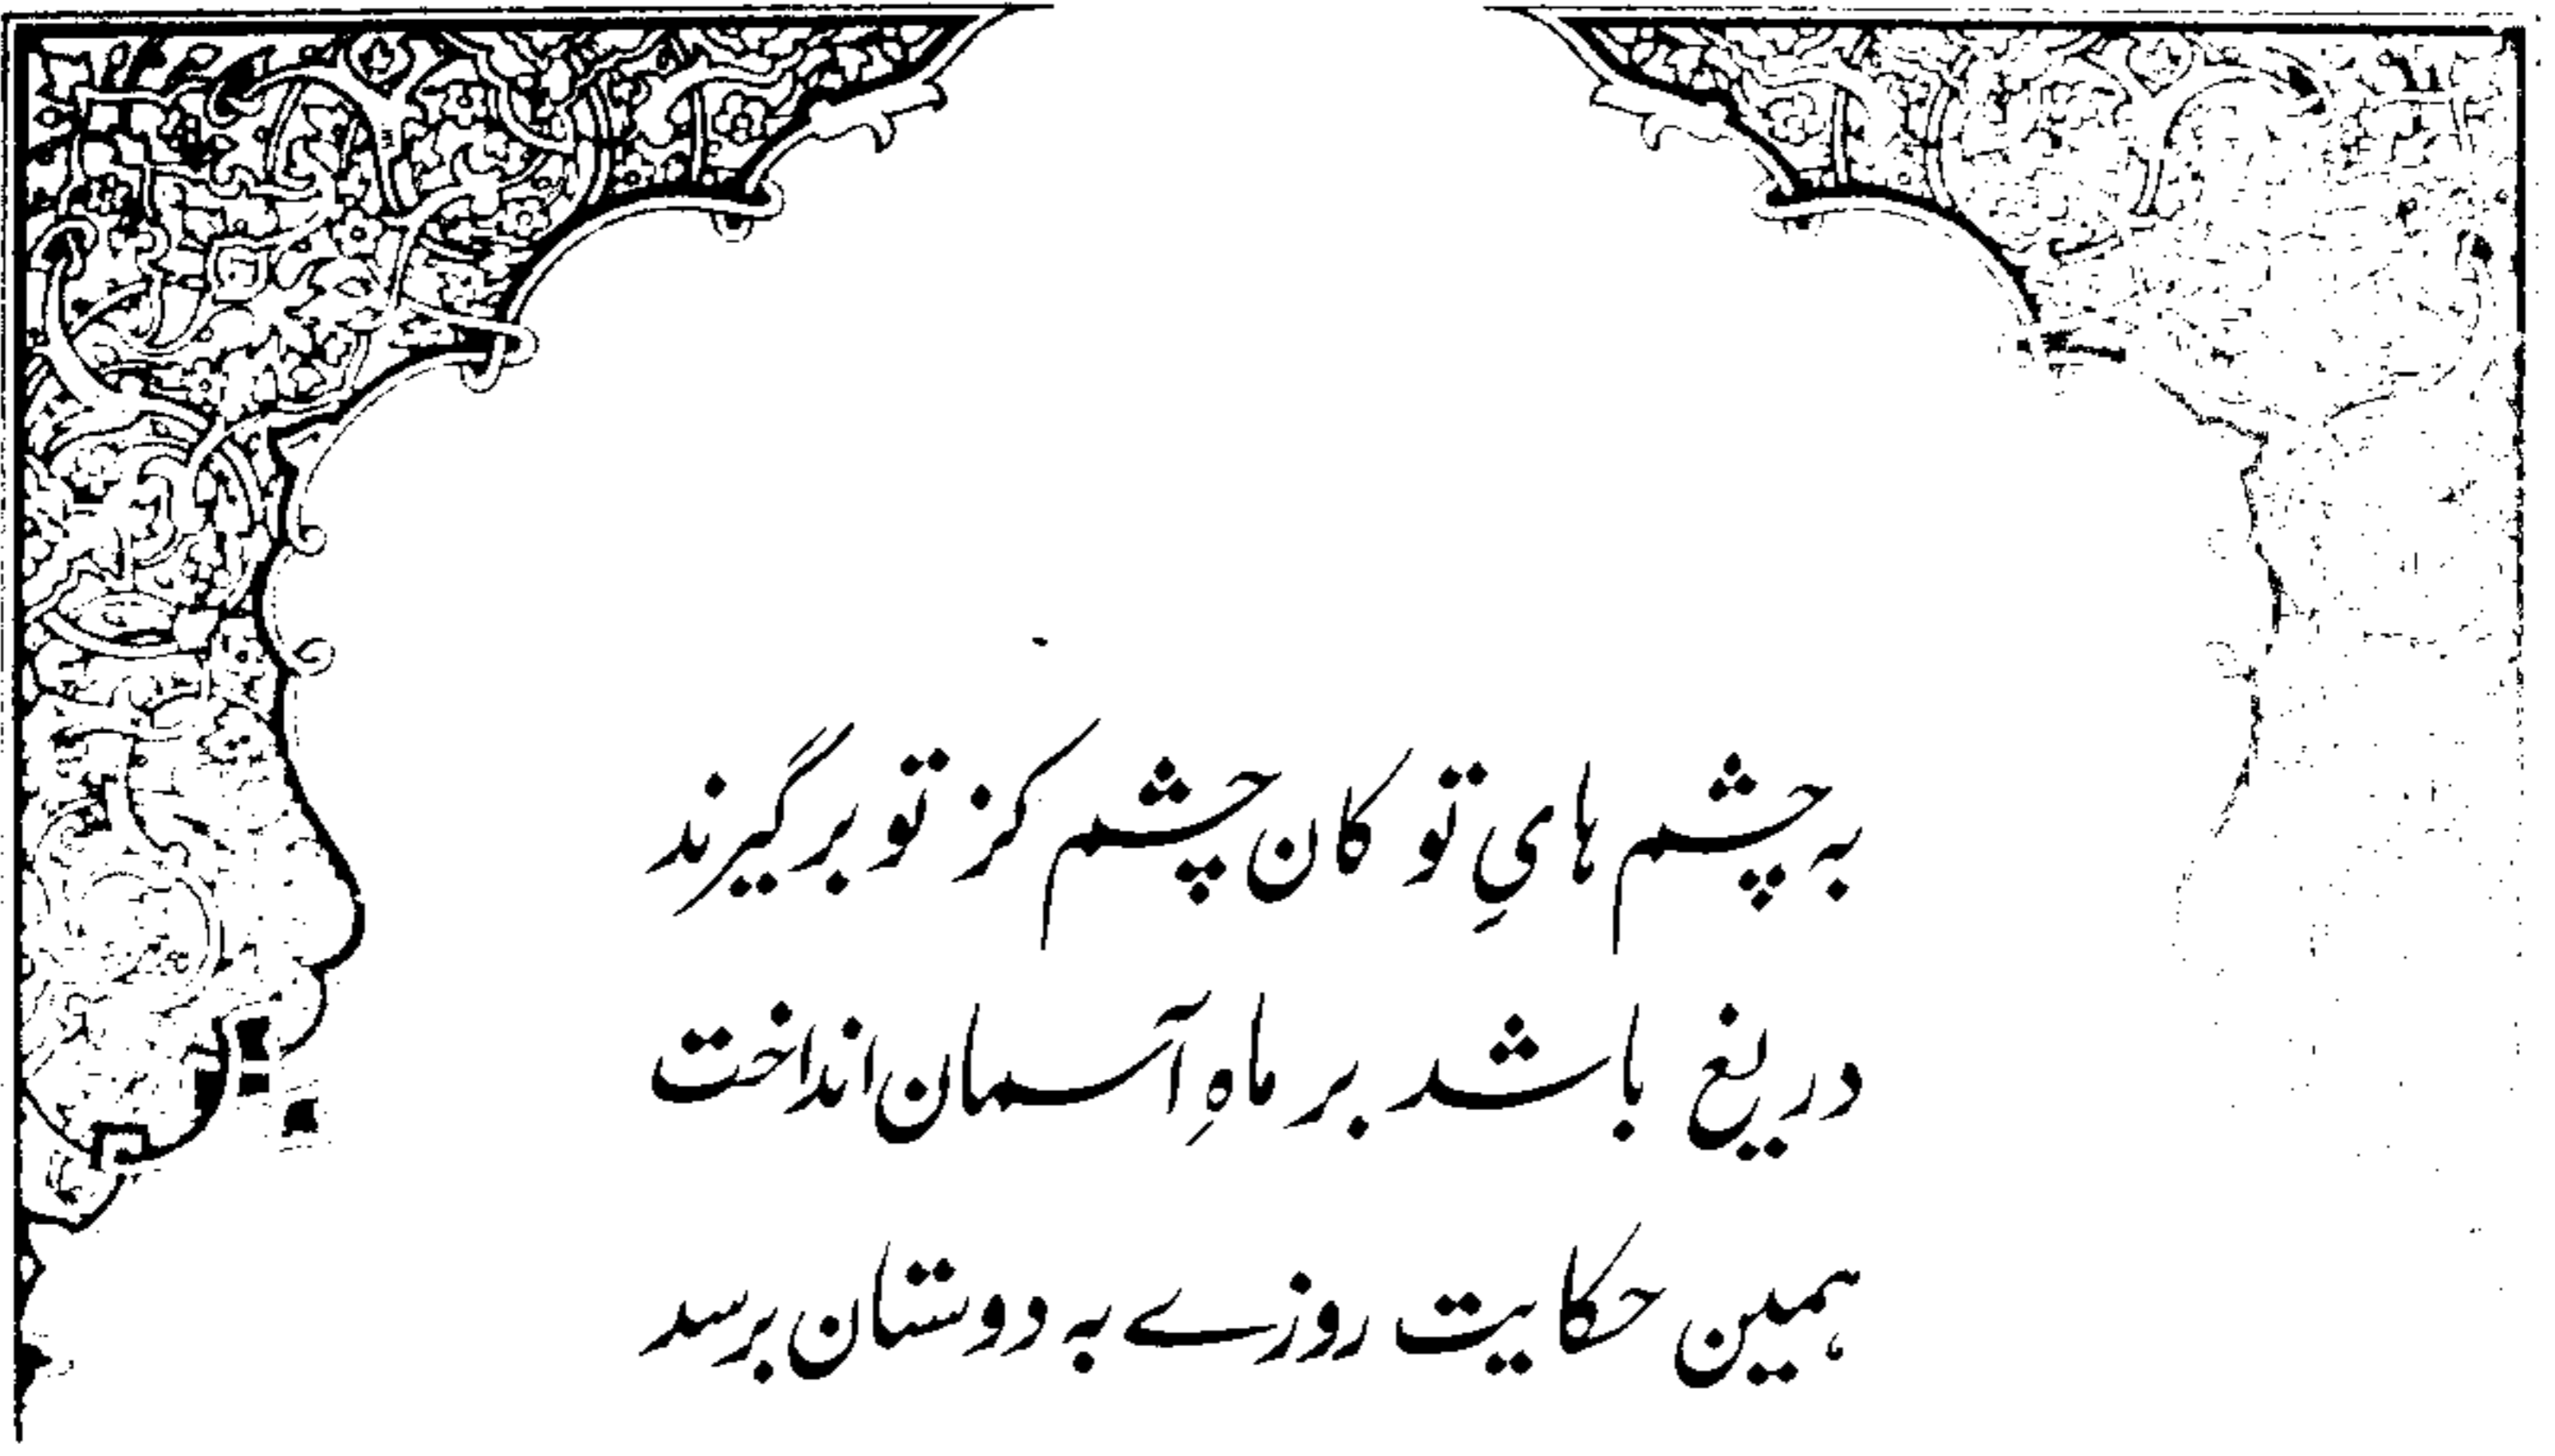 به چشم هایِ تو کان چشم کز تو برگیرند
دریغ باشد بر ماهِ آسمان انداخت
همین حکایت روزے به دوستان برسد